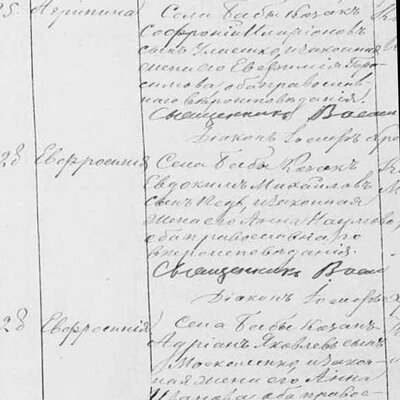 25. Агрипина Села Бабы Козакъ
Софроній Иларіоновъ
сынъ и законная
жена его Евфимія Гера-
симова, оба православ-
наго вѣроисповѣданія.
Священникъ Васи
Діаконъ Іосифъ
28 Евфросинія Села Бабы Козакъ
Евдокимъ Михайловъ
сынъ и законная
жена его Анна Наумова,
оба православнаго
вѣроисповѣданія.
Священникъ Васи
Діаконъ Іосифъ
28 Евфросинія Села Бабы Козакъ
Адріанъ Яковлевъ сынъ
Москаленко, и закон-
ная жена его, Анна
Иванова, оба правос-